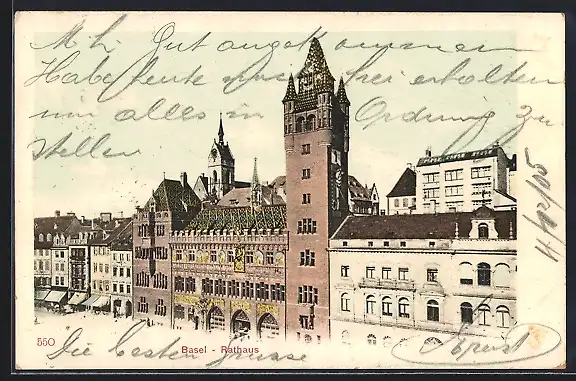 M. h. Gut angekommen
Habe heute frei erhalten
um alles in Ordnung zu
stellen
4/2/05
550
Basel - Rathaus
Die besten Grüsse
Ernst